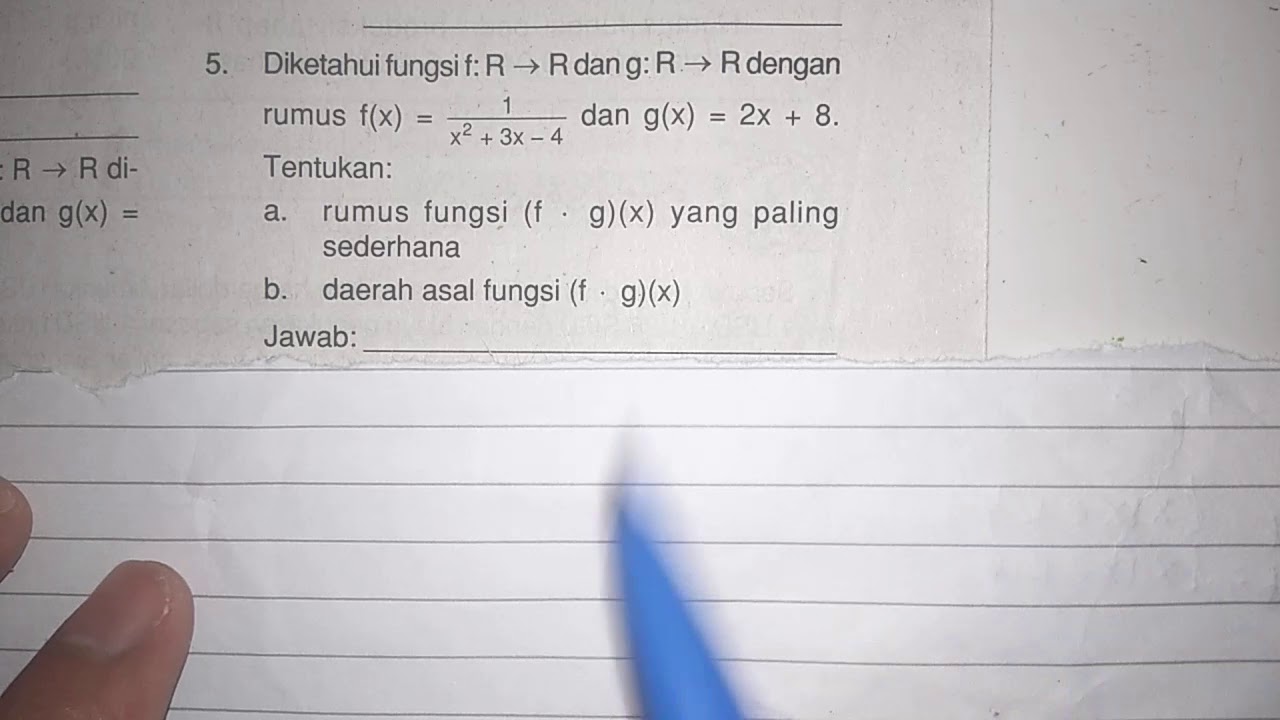 : R → R di-
dan g(x) =
5. Diketahui fungsi f: R → R dan g: R → R dengan
rumus f(x) = 1/(x² + 3x – 4) dan g(x) = 2x + 8.
Tentukan:
a. rumus fungsi (f · g)(x) yang paling
sederhana
b. daerah asal fungsi (f · g)(x)
Jawab: